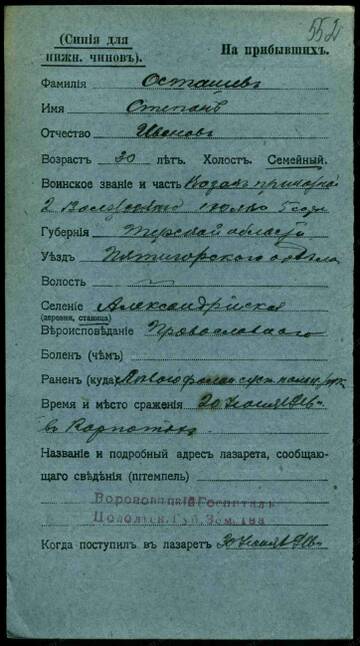 552
(Синія для
нижн. чиновъ).
На прибывшихъ.
Фамилія Осташевъ
Имя Степанъ
Отчество Ивановъ
Возрастъ 30 лѣтъ. Холостъ. Семейный.
Воинское званіе и часть Козакъ
2 полка
Губернія Терской области
Уѣздъ Пятигорскаго отдѣла
Волость
Селеніе Александрійская
(деревня, станица)
Вѣроисповѣданіе Православнаго
Боленъ (чѣмъ)
Раненъ (куда)
Время и мѣсто сраженія 20
въ Карпатахъ
Названіе и подробный адресъ лазарета, сообщаю-
щаго свѣдѣнія (штемпель)
Вороновицкій Госпиталь
Подольск. Губ. Земства
Когда поступилъ въ лазаретъ 30